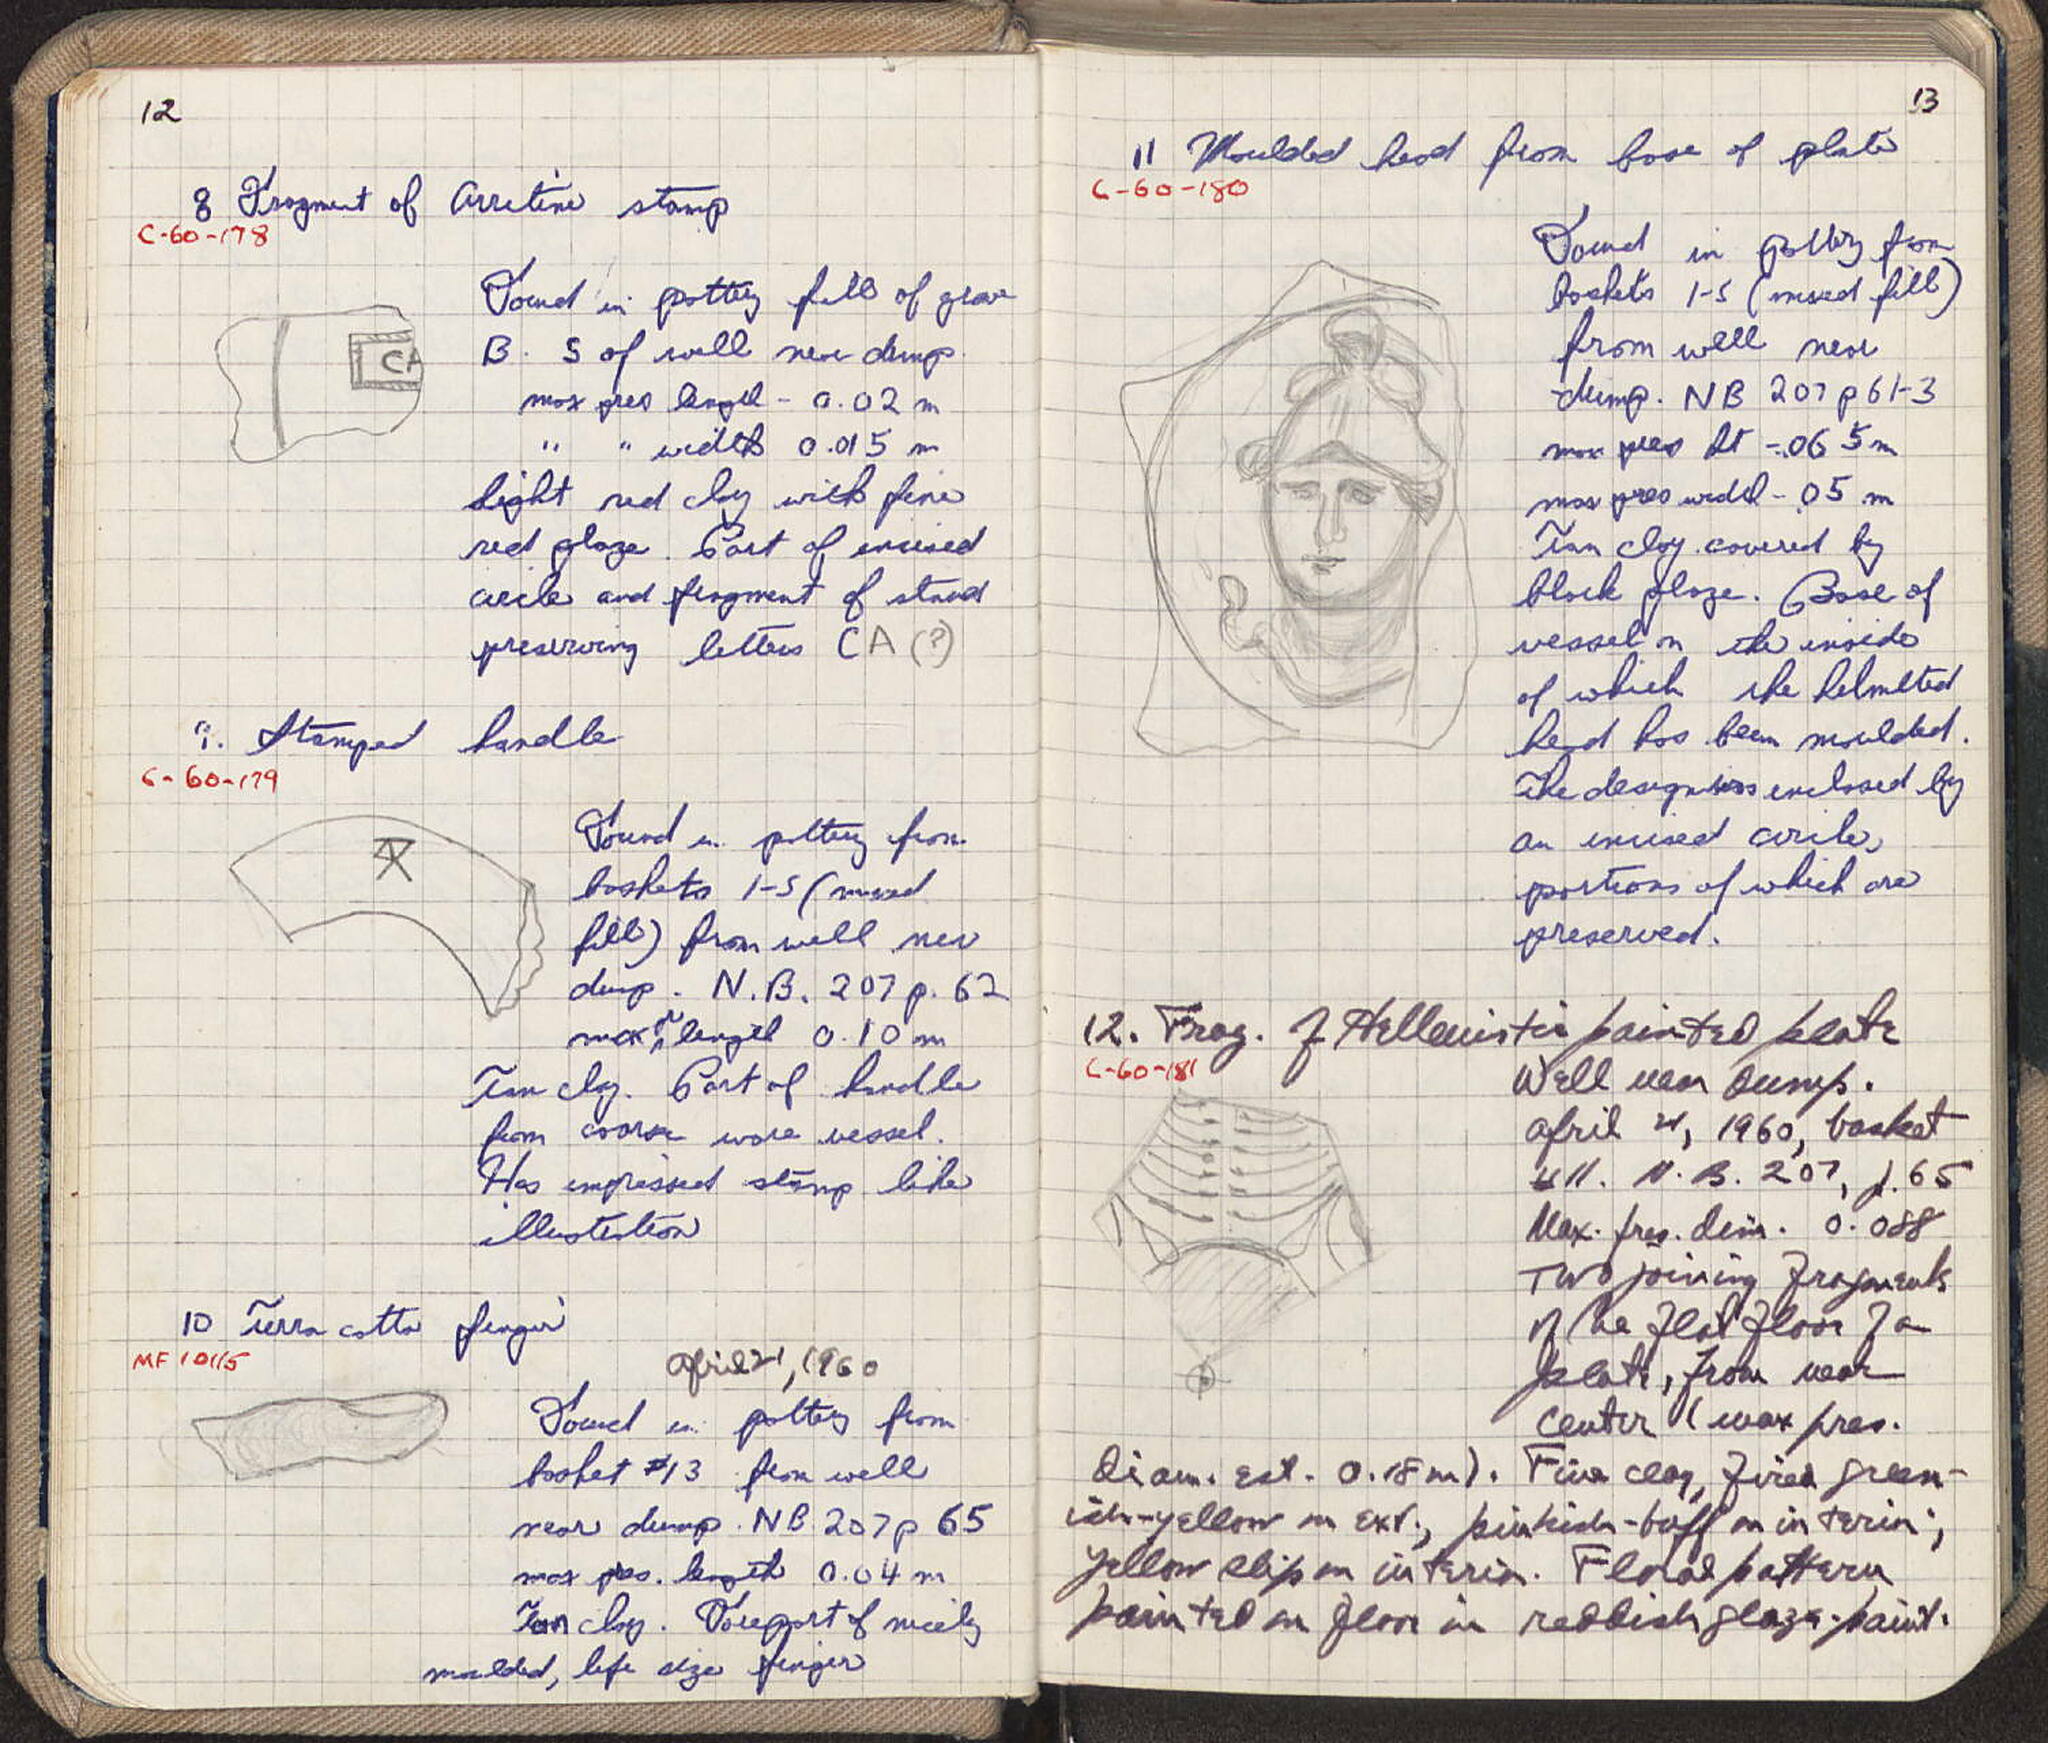 12
8 Fragment of Arretine stamp
C-60-178
Found in pottery fill of grave
B. S of well near dump.
max pres length - 0.02 m
" " width 0.015 m
Light red clay with fine
red glaze. Part of incised
circle and fragment of stamp
preserving letters CA (?)
CA
9. Stamped handle
C-60-179
Found in pottery from
baskets 1-5 (mixed
fill) from well near
dump. N.B. 207 p. 62
max pr length 0.10 m
Tan clay. Part of handle
from coarse ware vessel.
Has impressed stamp like
illustration
10 Terra cotta finger
MF 10115
April 21, 1960
Found in pottery from
basket #13 from well
near dump. NB 207 p 65
max pres. length 0.04 m
Tan clay. Forepart of nicely
moulded, life size finger
13
11 Moulded head from base of plate
C-60-180
Found in pottery from
baskets 1-5 (mixed fill)
from well near
dump. NB 207 p 61-3
max pres ht - .065 m
max pres width - .05 m
Tan clay covered by
black glaze. Base of
vessel on the inside
of which the helmeted
head has been moulded.
The design was enclosed by
an incised circle,
portions of which are
preserved.
12. Frag. of Hellenistic painted plate
C-60-181
Well near dump.
April 21, 1960, basket
#11. N.B. 207, p. 65
Max. pres. dim. 0.088
Two joining fragments
of the flat floor of a
plate, from near
center (max pres.
diam. est. 0.18 m). Fine clay, fired green-
ish-yellow on ext., pinkish-buff on interior;
yellow slip on interior. Floral pattern
painted on floor in reddish glaze-paint.